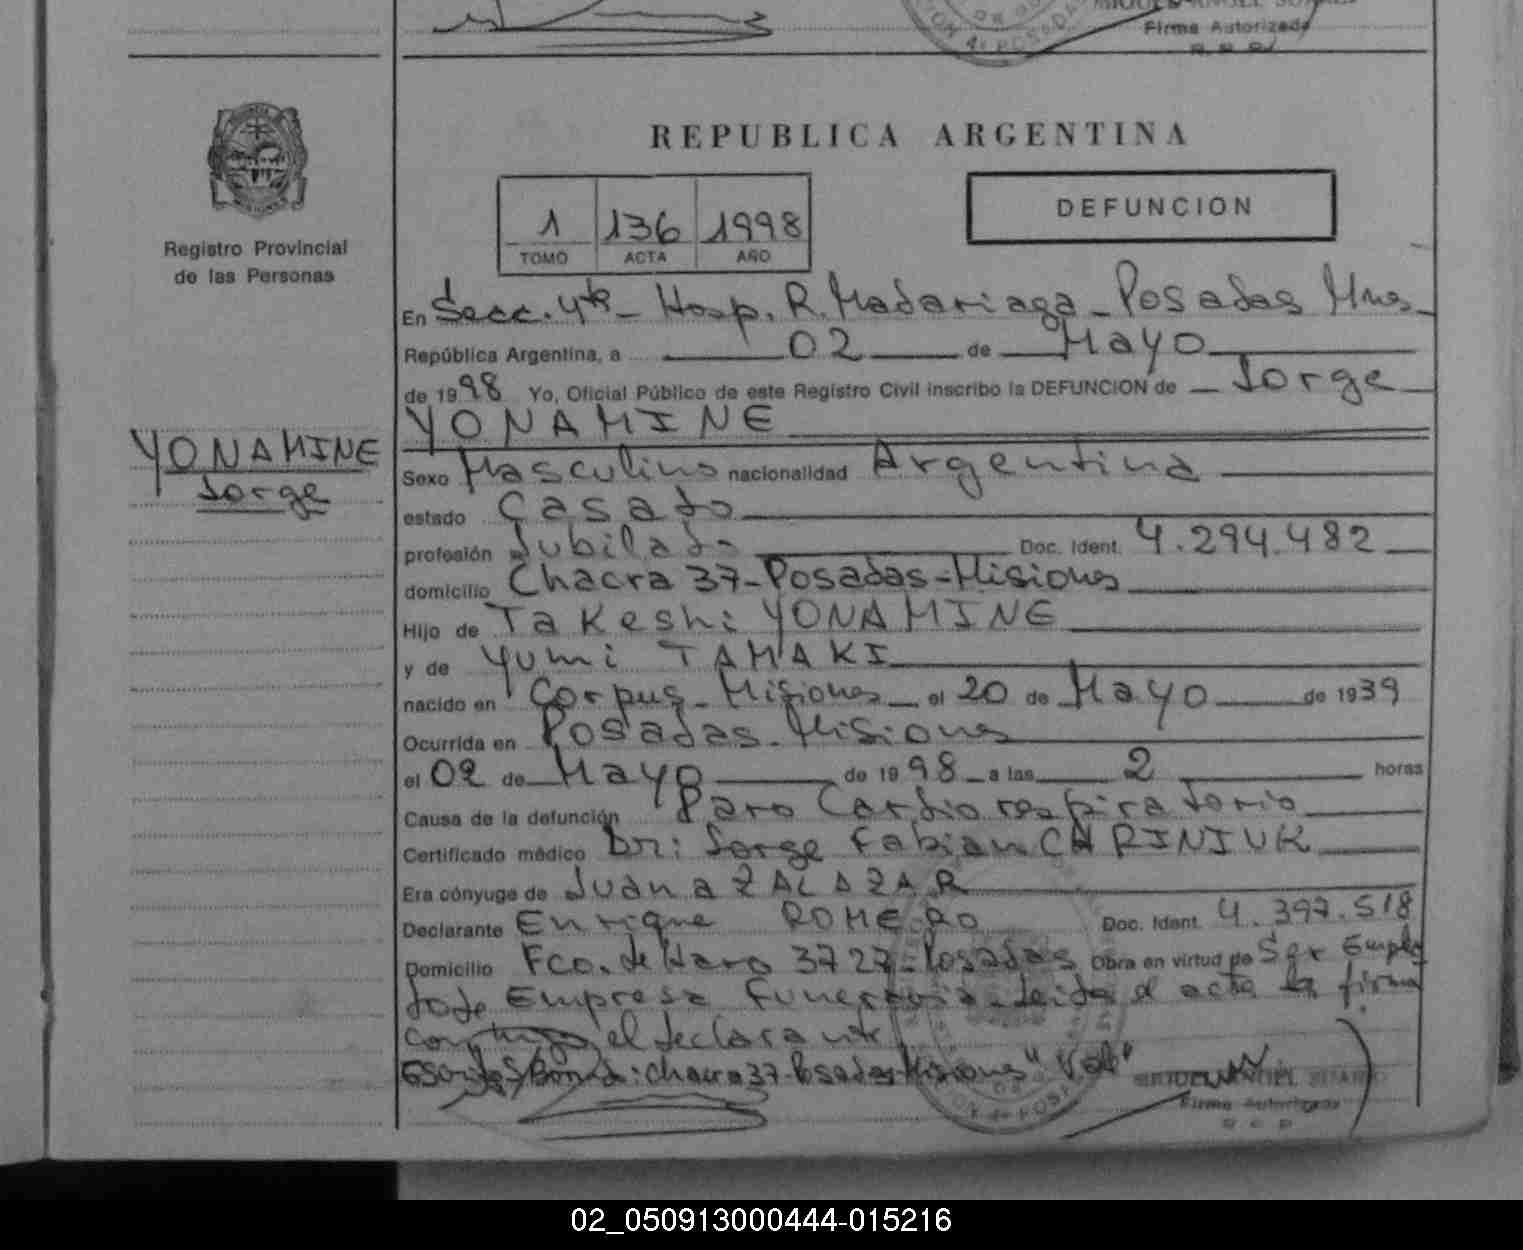 Firma Autorizada
REPUBLICA ARGENTINA
DEFUNCION
1 136 1998
TOMO ACTA AÑO
Registro Provincial
de las Personas
En Secc. 4ta - Hosp. R. Madariaga - Posadas Mnes -
República Argentina, a 02 de Mayo
de 1998 Yo, Oficial Público de este Registro Civil inscribo la DEFUNCION de - Jorge
YONAMINE
YONAMINE
Jorge
Sexo Masculino nacionalidad Argentina
estado Casado
profesión Jubilado Doc. Ident. 4.294.482
domicilio Chacra 37-Posadas-Misiones
Hijo de Takeshi YONAMINE
y de Yumi TAMAKI
nacido en Corpus - Misiones - el 20 de Mayo de 1939
Ocurrida en Posadas - Misiones
el 02 de Mayo de 1998 - a las 2 horas
Causa de la defunción Paro Cardiorespiratorio
Certificado médico Dr: Jorge Fabian CHRINIUK
Era cónyuge de Juana ZALAZAR
Declarante Enrique ROMERO Doc. Ident. 4.397.518
Domicilio Fco. de Haro 3727 - Posadas Obra en virtud de Ser Emplea
do de Empresa Funeraria - Leida el acta la firma
conmigo el declarante
Chacra 37-Posadas-Misiones "Vale"
MIGUEL ANGEL
Firma Autorizada
02_050913000444-015216